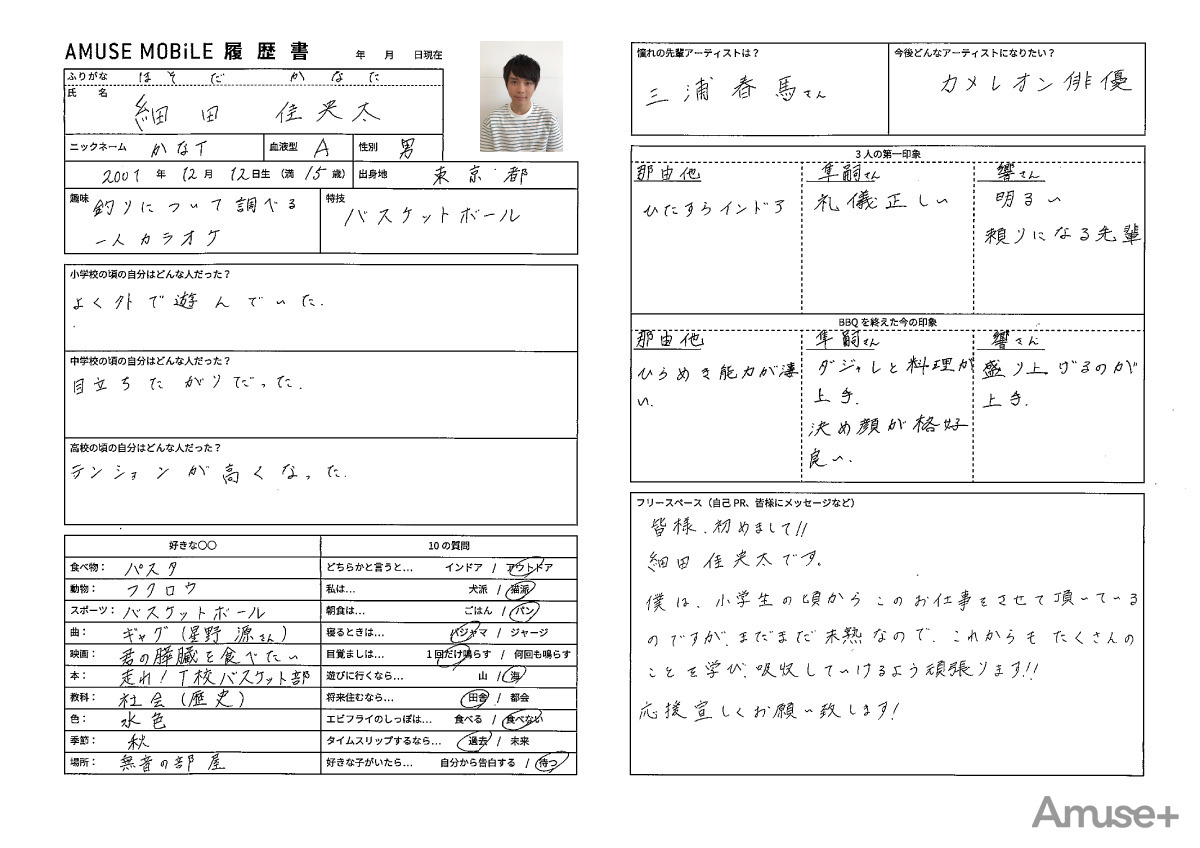 AMUSE MOBiLE 履歴書
年 月 日現在
ふりがな ほそだ かなた
氏名 細田 佳央太
ニックネーム かなT 血液型 A 性別 男
2001 年 12 月 12 日生 (満 15 歳) 出身地 東京都
趣味 釣りについて調べる
一人カラオケ
特技 バスケットボール
小学校の頃の自分はどんな人だった?
よく外で遊んでいた.
中学校の頃の自分はどんな人だった?
目立ちたがりだった.
高校の頃の自分はどんな人だった?
テンションが高くなった.
好きな〇〇
食べ物: パスタ
動物: フクロウ
スポーツ: バスケットボール
曲: ギャグ(星野 源さん)
映画: 君の膵臓を食べたい
本: 走れ!T校バスケット部
教科: 社会(歴史)
色: 水色
季節: 秋
場所: 無音の部屋
10の質問
どちらかと言うと… インドア / アウトドア
私は… 犬派 / 猫派
朝食は… ごはん / パン
寝るときは… パジャマ / ジャージ
目覚ましは… 1回だけ鳴らす / 何回も鳴らす
遊びに行くなら… 山 / 海
将来住むなら… 田舎 / 都会
エビフライのしっぽは… 食べる / 食べない
タイムスリップするなら… 過去 / 未来
好きな子がいたら… 自分から告白する / 待つ
憧れの先輩アーティストは?
三浦春馬さん
今後どんなアーティストになりたい?
カメレオン俳優
3人の第一印象
那由他
ひたすらインドア
隼嗣さん
礼儀正しい
響さん
明るい
頼りになる先輩
BBQを終えた今の印象
那由他
ひらめき能力が凄
い.
隼嗣さん
ダジャレと料理が
上手.
決め顔が格好
良い.
響さん
盛り上げるのが
上手.
フリースペース(自己PR、皆様にメッセージなど)
皆様.初めまして!!
細田佳央太です.
僕は、小学生の頃からこのお仕事をさせて頂いている
のですが、まだまだ未熟なので、これからもたくさんの
ことを学び、吸収していけるよう頑張ります!!
応援宜しくお願い致します!
Amuse+